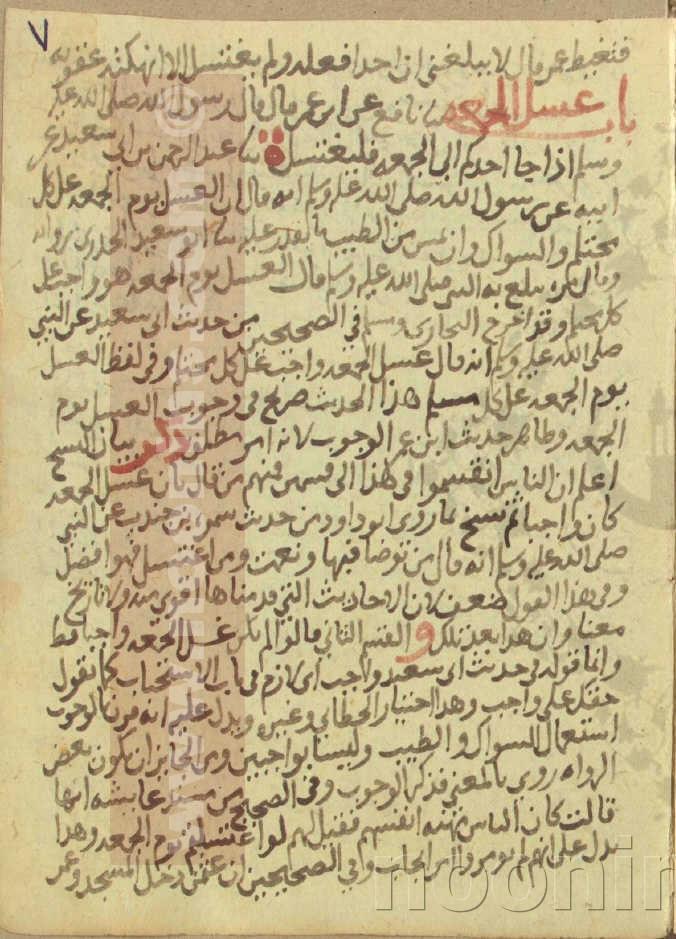 ٧
فتغيظ عمر وقال لا يبلغني ان احدا فعله ولم يغتسل الا انهكته عقوبه
باب غسل الجمعه ثنا نافع عن ابن عمر قال قال رسول الله صلى الله عليه
وسلم اذا جا احدكم الى الجمعه فليغتسل ثنا عبد الرحمن بن ابي سعيد عن
ابيه عن رسول الله صلى الله عليه وسلم انه قال ان الغسل يوم الجمعه على كل
محتلم والسواك وان يمس من الطيب ما يقدر عليه ابو سعيد الخدري
يبلغ به النبي صلى الله عليه وسلم قال الغسل يوم الجمعه هو واجب على
كل محتلم وقد اخرج البخاري ومسلم في الصحيحين من حديث ابي سعيد عن النبي
صلى الله عليه وسلم انه قال غسل الجمعه واجب على كل محتلم وفي لفظ الغسل
يوم الجمعه على كل مسلم هذا الحديث صريح في وجوب الغسل يوم
الجمعه وظاهر حديث ابن عمر الوجوب لانه امر مطلق ذكر بيان النسخ
اعلم ان الناس انقسموا في هذا الى قسمين فمنهم من قال بان غسل الجمعه
كان واجبا ثم نسخ بما روى ابو داود من حديث سمره بن جندب عن النبي
صلى الله عليه وسلم انه قال من توضا فبها ونعمت ومن اغتسل فهو افضل
وفي هذا القول ضعف لان الاحاديث التي قدمناها اقوى منه ولا تاريخ
معنا وان هذا بعد تلك و القسم الثاني قالوا لم يكن غسل الجمعه واجبا قط
وانما قوله في حديث ابي سعيد واجب اي لازم في باب الاستحباب كما تقول
حقك علي واجب وهذا اختيار الخطابي وغيره ويدل عليه انه قرن بالوجوب
استعمال السواك والطيب وليسا بواجبين ومن الجايز ان يكون بعض
الرواه روي بالمعنى فذكر الوجوب وفي الصحيح من مسند عايشه انها
قالت كان الناس مهنه انفسهم فقيل لهم لو اغتسلتم يوم الجمعه وهذا
يدل على انهم لم يومروا امر ايجاب وفي الصحيحين ان عثمن دخل المسجد وعمر
noorin